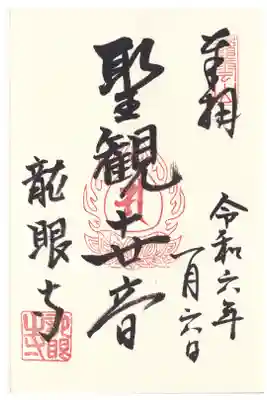 奉拝
令和六年
一月六日
聖観世音
龍眼寺